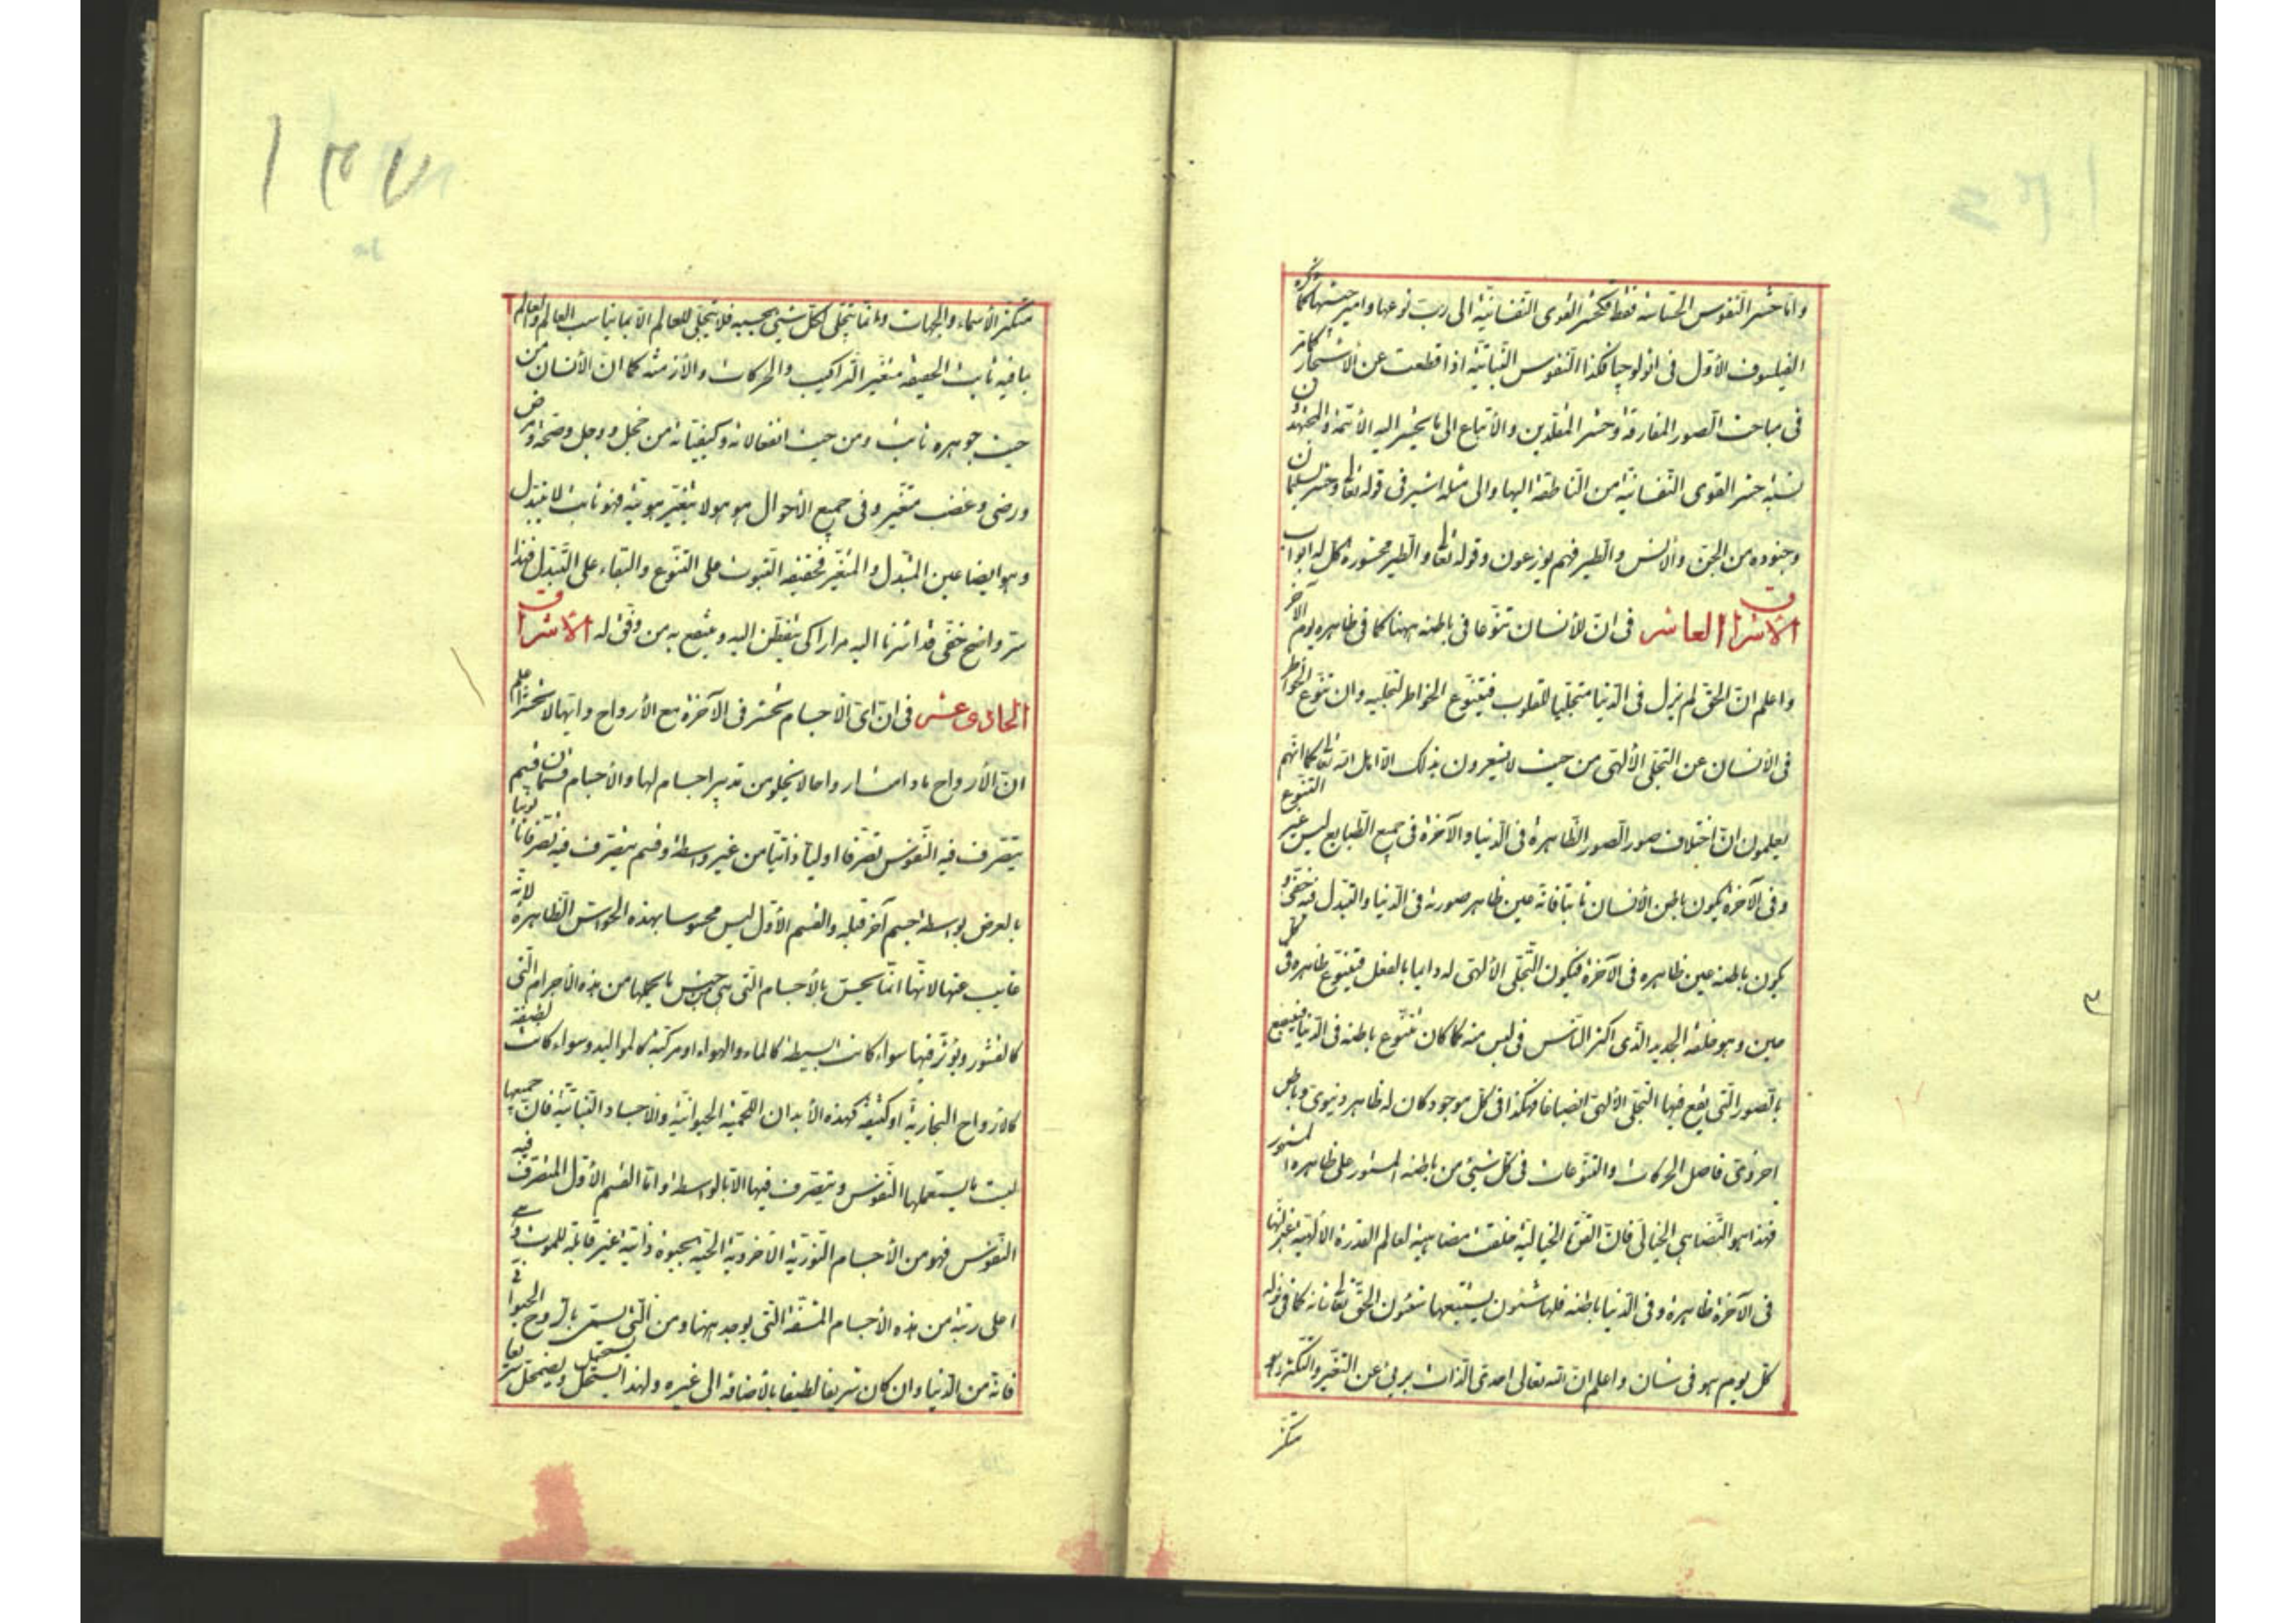 واما حشر النفوس الحساسة فقط فكحشر القوى النفسانية الى رب نوعها وامير جيشها كما ذكره
الفيلسوف الأول فى اثولوجيا فكذا النفوس النباتية اذا قطعت عن الأشجار كما مر
فى مباحث الصور المفارقة وحشر المقلدين والأتباع الى ما يحشر اليه الأئمة والمجتهدون
نسبة حشر القوى النفسانية من الناطقة اليها والى مثله اشير فى قوله تعالى وحشر لسليمان
وجنوده من الجن والانس والطير فهم يوزعون وقوله تعالى والطير محشورة كل له اواب
الاشراق العاشر فى ان للأنسان تنوعا فى باطنه ههنا كما فى ظاهره يوم الآخر
واعلم ان الحق لم يزل فى الدنيا متجليا للقلوب فيتنوع الخواطر لتجليه وان تنوع الخواطر
فى الأنسان عن التجلى الألهى من حيث لا يشعرون بذلك الا اهل الله تعالى كما انهم
يعلمون ان اختلاف صور الصور الظاهرة فى الدنيا والآخرة فى جميع الطبايع ليس غير التنوع
وفى الآخرة يكون باطن الأنسان ثابتا فانه عين ظاهر صورته فى الدنيا والتبدل فيه خفى و
يكون باطنه عين ظاهره فى الآخرة فيكون التجلى الألهى له دايما بالفعل فيتنوع ظاهره فى كل
حين وهو خلقه الجديد الذى اكثر الناس فى لبس منه كما كان يتنوع باطنه فى الدنيا فينصبغ
بالصور التى يقع فيها التجلى الألهى انصباغا فهكذا فى كل موجود كان له ظاهر دنيوى وباطن
اخروى فاصل الحركات والتنوعات فى كل شيئ من باطنه المستور على ظاهره المشهور
فهذا هو التضاهى الخيالى فان القوة الخيالية خلقت مضاهية لعالم القدرة الألهية غير انها
فى الآخرة ظاهرة وفى الدنيا باطنه فلها شئون يستتبعها شئون الحق تعالى شانه كما فى قوله
كل يوم هو فى شان واعلم ان الله تعالى احدى الذات برئ عن التغير والتكثر
متكثر
١٣٧
متكثر الأسماء والجهات وانما يتجلى لكل شيئ بحسبه فلا يتجلى للعالم الا بما يناسب العالم والعالم
بما فيه ثابت الحقيقة متغير التراكيب والحركات والأزمنة كما ان الأنسان من
حيث جوهره ثابت ومن حيث انفعالاته وكيفياته من خجل ووجل وصحة ومرض
ورضى وغضب متغير وفى جميع الأحوال هو هو لا يتغير هويته فهو ثابت لا يتبدل
وهو ايضا عين المتبدل والمتغير فحقيقه الثبوت على التنوع والبقاء على التبدل فهذا
سر واضح خفى قد اشرنا اليه مرارا كى يتفطن اليه وينتفع به من وفق له الاشراق
الحادى عشر فى ان اى الاجسام تحشر فى الآخرة مع الأرواح وايها لا تحشر اعلم
ان الأرواح ما دامت ارواحا لا يخلو من تدبير اجسام لها والأجسام قسمان قسم
يتصرف فيه النفوس تصرفا اوليا ذاتيا من غير واسطة وقسم يتصرف فيه تصرفا ثانويا
بالعرض بواسطة جسم آخر قبله والقسم الأول ليس محسوسا بهذه الحواس الظاهرة لانه
غايب عنها لانها انما يحس بالأجسام التى هى من جنس ما يحملها من هذه الأجرام التى
كالقشور ويؤثر فيها سواء كانت بسيطة كالماء والهواء او مركبة كالمواليد وسواء كانت لطيفة
كالأرواح البخارية او كثيفة كهذه الأبدان اللحمية الحيوانية والاجساد النباتية فان جميعها
ليست ما يستعملها النفوس ويتصرف فيها الا بالواسطة واما القسم الأول المتصرف فيه
النفوس فهو من الأجسام النورية الأخروية الحية بحيوة ذاتية غير قابلة للموت وهى
اعلى رتبة من هذه الأجسام المشفة التى يوجد ههنا ومن التى يسمى بالروح الحيوانى
فانه من الدنيا وان كان شريفا لطيفا بالأضافة الى غيره ولهذا يستحيل ويضمحل سريعا